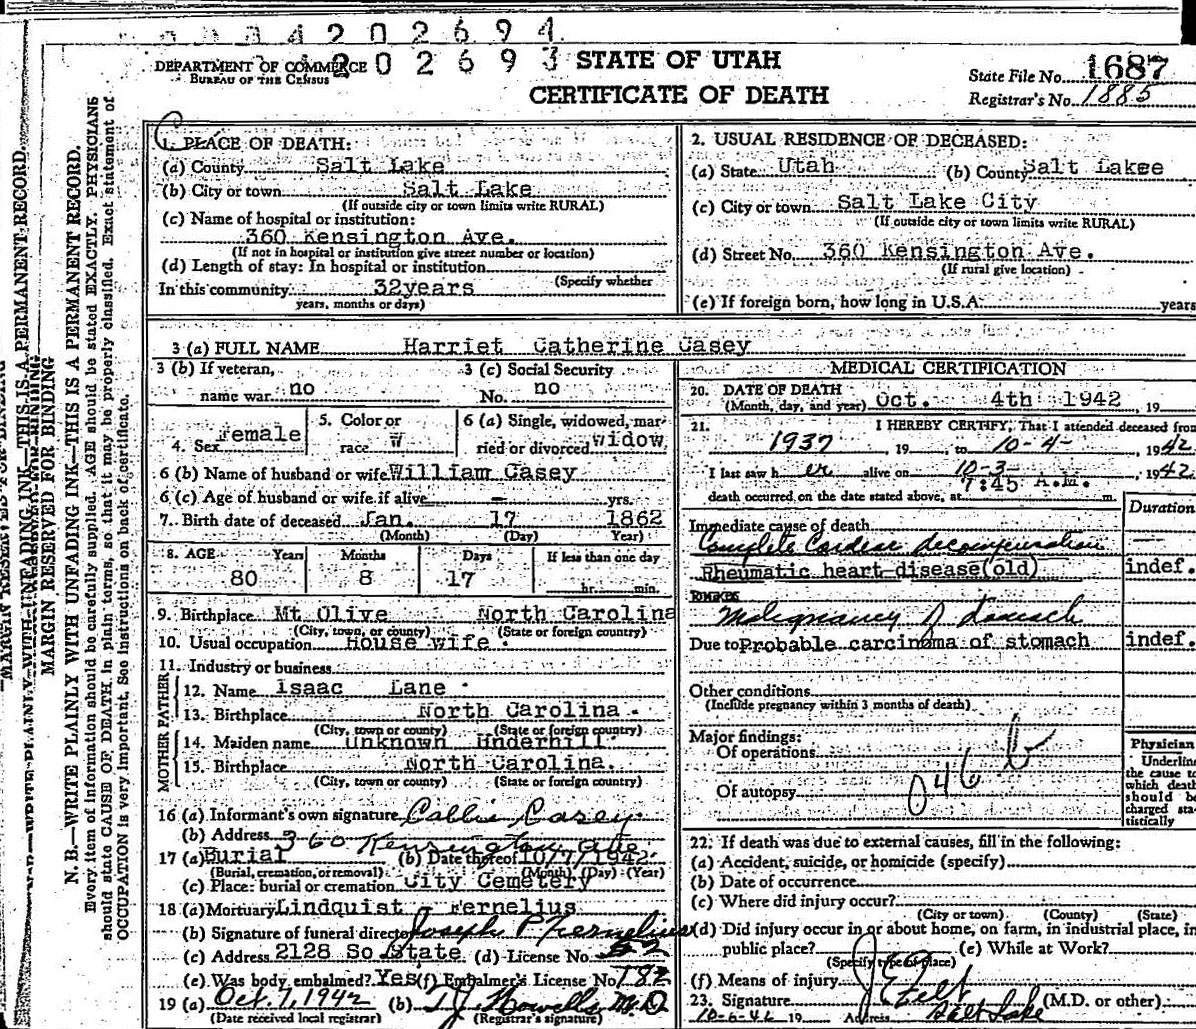 4 2 0 2 6 9 4
2 0 2 6 9 3
DEPARTMENT OF COMMERCE
BUREAU OF THE CENSUS
STATE OF UTAH
CERTIFICATE OF DEATH
State File No. 1687
Registrar's No. 1885
MARGIN RESERVED FOR BINDING
N. B.—WRITE PLAINLY WITH UNFADING INK—THIS IS A PERMANENT RECORD.
Every item of information should be carefully supplied. AGE should be stated EXACTLY. PHYSICIANS
should state CAUSE OF DEATH in plain terms, so that it may be properly classified. Exact statement of
OCCUPATION is very important. See instructions on back of certificate.
1. PLACE OF DEATH:
(a) County Salt Lake
(b) City or town Salt Lake
(If outside city or town limits write RURAL)
(c) Name of hospital or institution:
360 Kensington Ave.
(If not in hospital or institution give street number or location)
(d) Length of stay: In hospital or institution
(Specify whether
In this community 32years
years, months or days)
2. USUAL RESIDENCE OF DECEASED:
(a) State Utah (b) County Salt Lakee
(c) City or town Salt Lake City
(If outside city or town limits write RURAL)
(d) Street No. 360 Kensington Ave.
(If rural give location)
(e) If foreign born, how long in U.S.A. years
3 (a) FULL NAME Harriet Catherine Casey
3 (b) If veteran,
name war no
3 (c) Social Security
No. no
4. Sex Female
5. Color or
race W
6 (a) Single, widowed, mar-
ried or divorced widow
6 (b) Name of husband or wife William Casey
6 (c) Age of husband or wife if alive — yrs.
7. Birth date of deceased Jan. 17 1862
(Month) (Day) Year)
8. AGE Years Months Days If less than one day
80 8 17 hr. min.
9. Birthplace Mt Olive North Carolina
(City, town, or county) (State or foreign country)
10. Usual occupation House wife
11. Industry or business
FATHER
12. Name Isaac Lane
13. Birthplace North Carolina
(City, town or county) (State or foreign country)
MOTHER
14. Maiden name Unknown Underhill
15. Birthplace North Carolina.
(City, town or county) (State or foreign country)
16 (a) Informant's own signature Callie Casey
(b) Address 360 Kensington Ave
17 (a) Burial (b) Date thereof 10/7/1942
(Burial, cremation, or removal) (Month) (Day) (Year)
(c) Place: burial or cremation City Cemetery
18 (a) Mortuary Lindquist - Fernelius
(b) Signature of funeral director Joseph P Fernelius
(c) Address 2128 So State (d) License No.
(e) Was body embalmed? Yes (f) Embalmer's License No. 182
19 (a) Oct. 7, 1942 (b) T J Howells M.D
(Date received local registrar) (Registrar's signature)
MEDICAL CERTIFICATION
20. DATE OF DEATH
(Month, day, and year) Oct. 4th 1942, 19
21. I HEREBY CERTIFY, That I attended deceased from
1937, 19 , to 10-4-, 1942
I last saw h er alive on 10-3-, 1942
death occurred on the date stated above, at 7:45 A.M. m.
Duration
Immediate cause of death
Complete Cardiac decompensation
Rheumatic heart disease(old) indef.
Malignancy of stomach
Due to Probable carcinoma of stomach indef.
Other conditions
(Include pregnancy within 3 months of death)
Major findings:
Of operations
Of autopsy
046 b
Physician
Underline
the cause to
which death
should be
charged sta-
tistically
22. If death was due to external causes, fill in the following:
(a) Accident, suicide, or homicide (specify)
(b) Date of occurrence
(c) Where did injury occur?
(City or town) (County) (State)
(d) Did injury occur in or about home, on farm, in industrial place, in
public place? (e) While at Work?
(Specify type of place)
(f) Means of injury
23. Signature J E Felt (M.D. or other)
10-6-42 19 Address Salt Lake